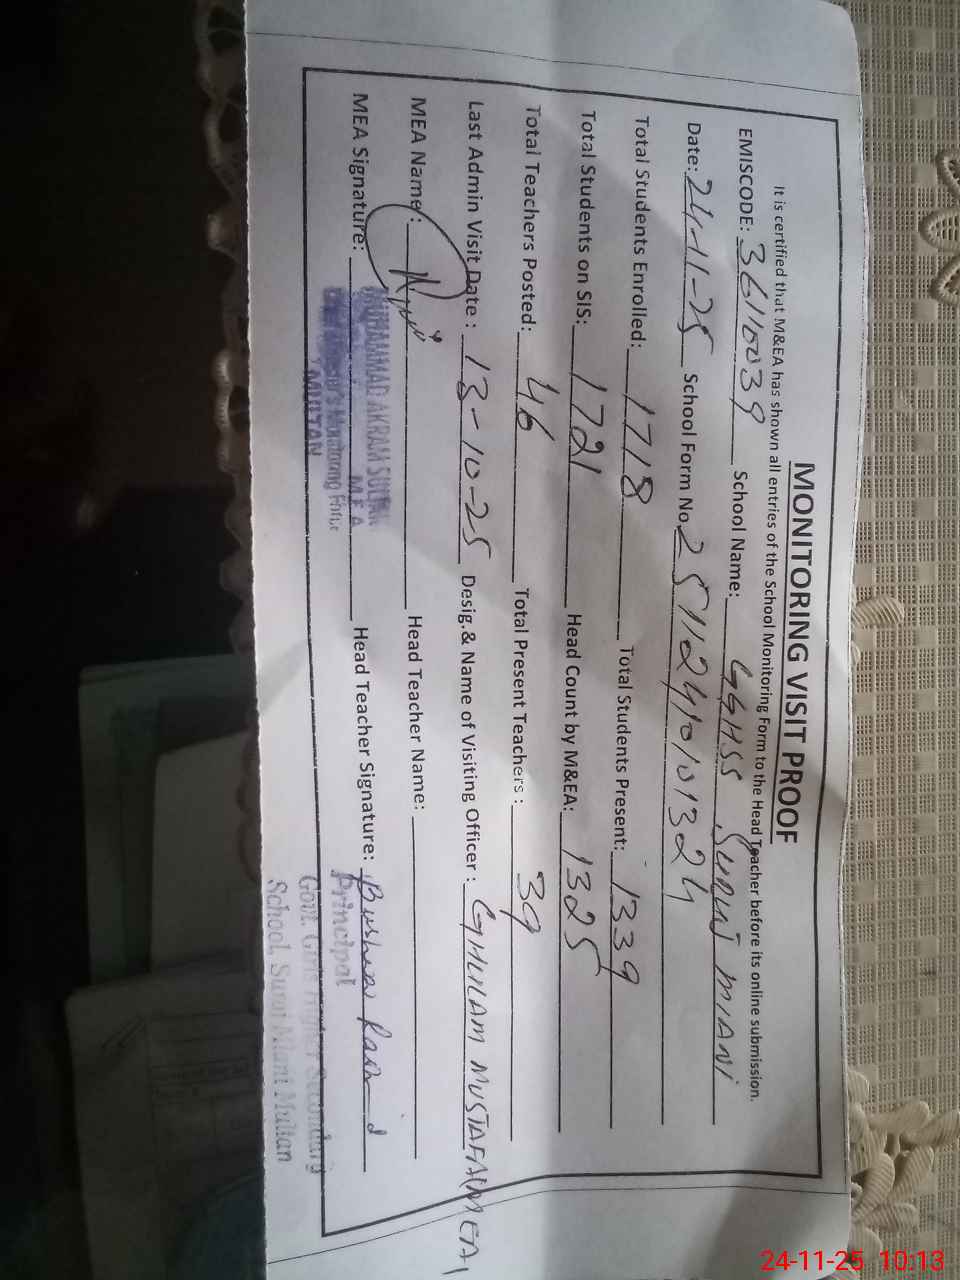 MONITORING VISIT PROOF
It is certified that M&EA has shown all entries of the School Monitoring Form to the Head Teacher before its online submission.
EMISCODE: 36110039 School Name: GGHSS SURUJ MIANI
Date: 24-11-25 School Form No. 25112410101324
Total Students Enrolled: 1718 Total Students Present: 1339
Total Students on SIS: 1721 Head Count by M&EA: 1325
Total Teachers Posted: 46 Total Present Teachers : 39
Last Admin Visit Date : 13-10-25 Desig.& Name of Visiting Officer : GHULAM MUSTAFA(MEA)
MEA Name: Head Teacher Name:
MUHAMMAD AKRAM SULTAN
MEA Signature: M E A Head Teacher Signature: Bushra Rashid
Monitoring Force Principal
MULTAN Govt. Girls Higher Secondary
School, Suraj Miani Multan
24-11-25 10:13